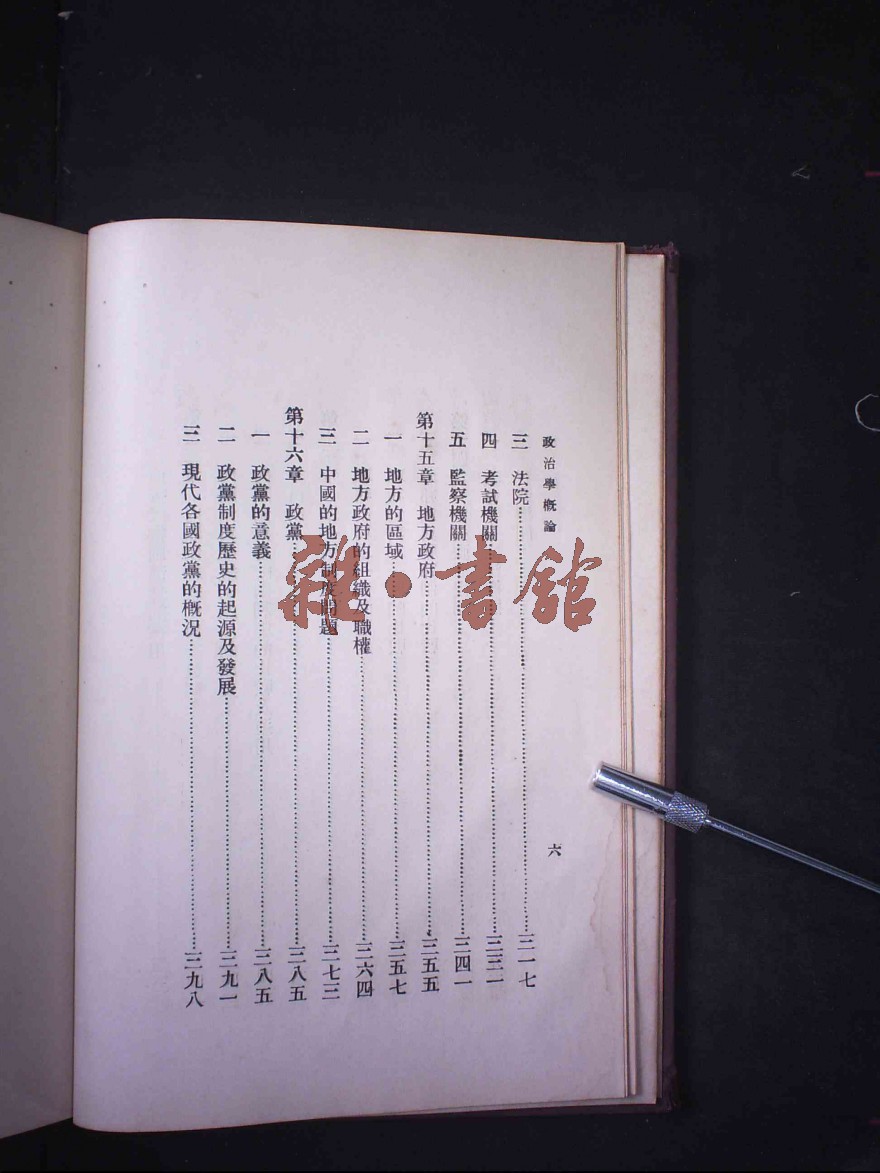 政治學概論
六
三 法院……三一七
四 考試機關……三三一
五 監察機關……三四一
第十五章 地方政府……三五五
一 地方的區域……三五七
二 地方政府的組織及職權……三六四
三 中國的地方制度問題……三七三
第十六章 政黨……三八五
一 政黨的意義……三八五
二 政黨制度歷史的起源及發展……三九一
三 現代各國政黨的槪況……三九八
雜·書館